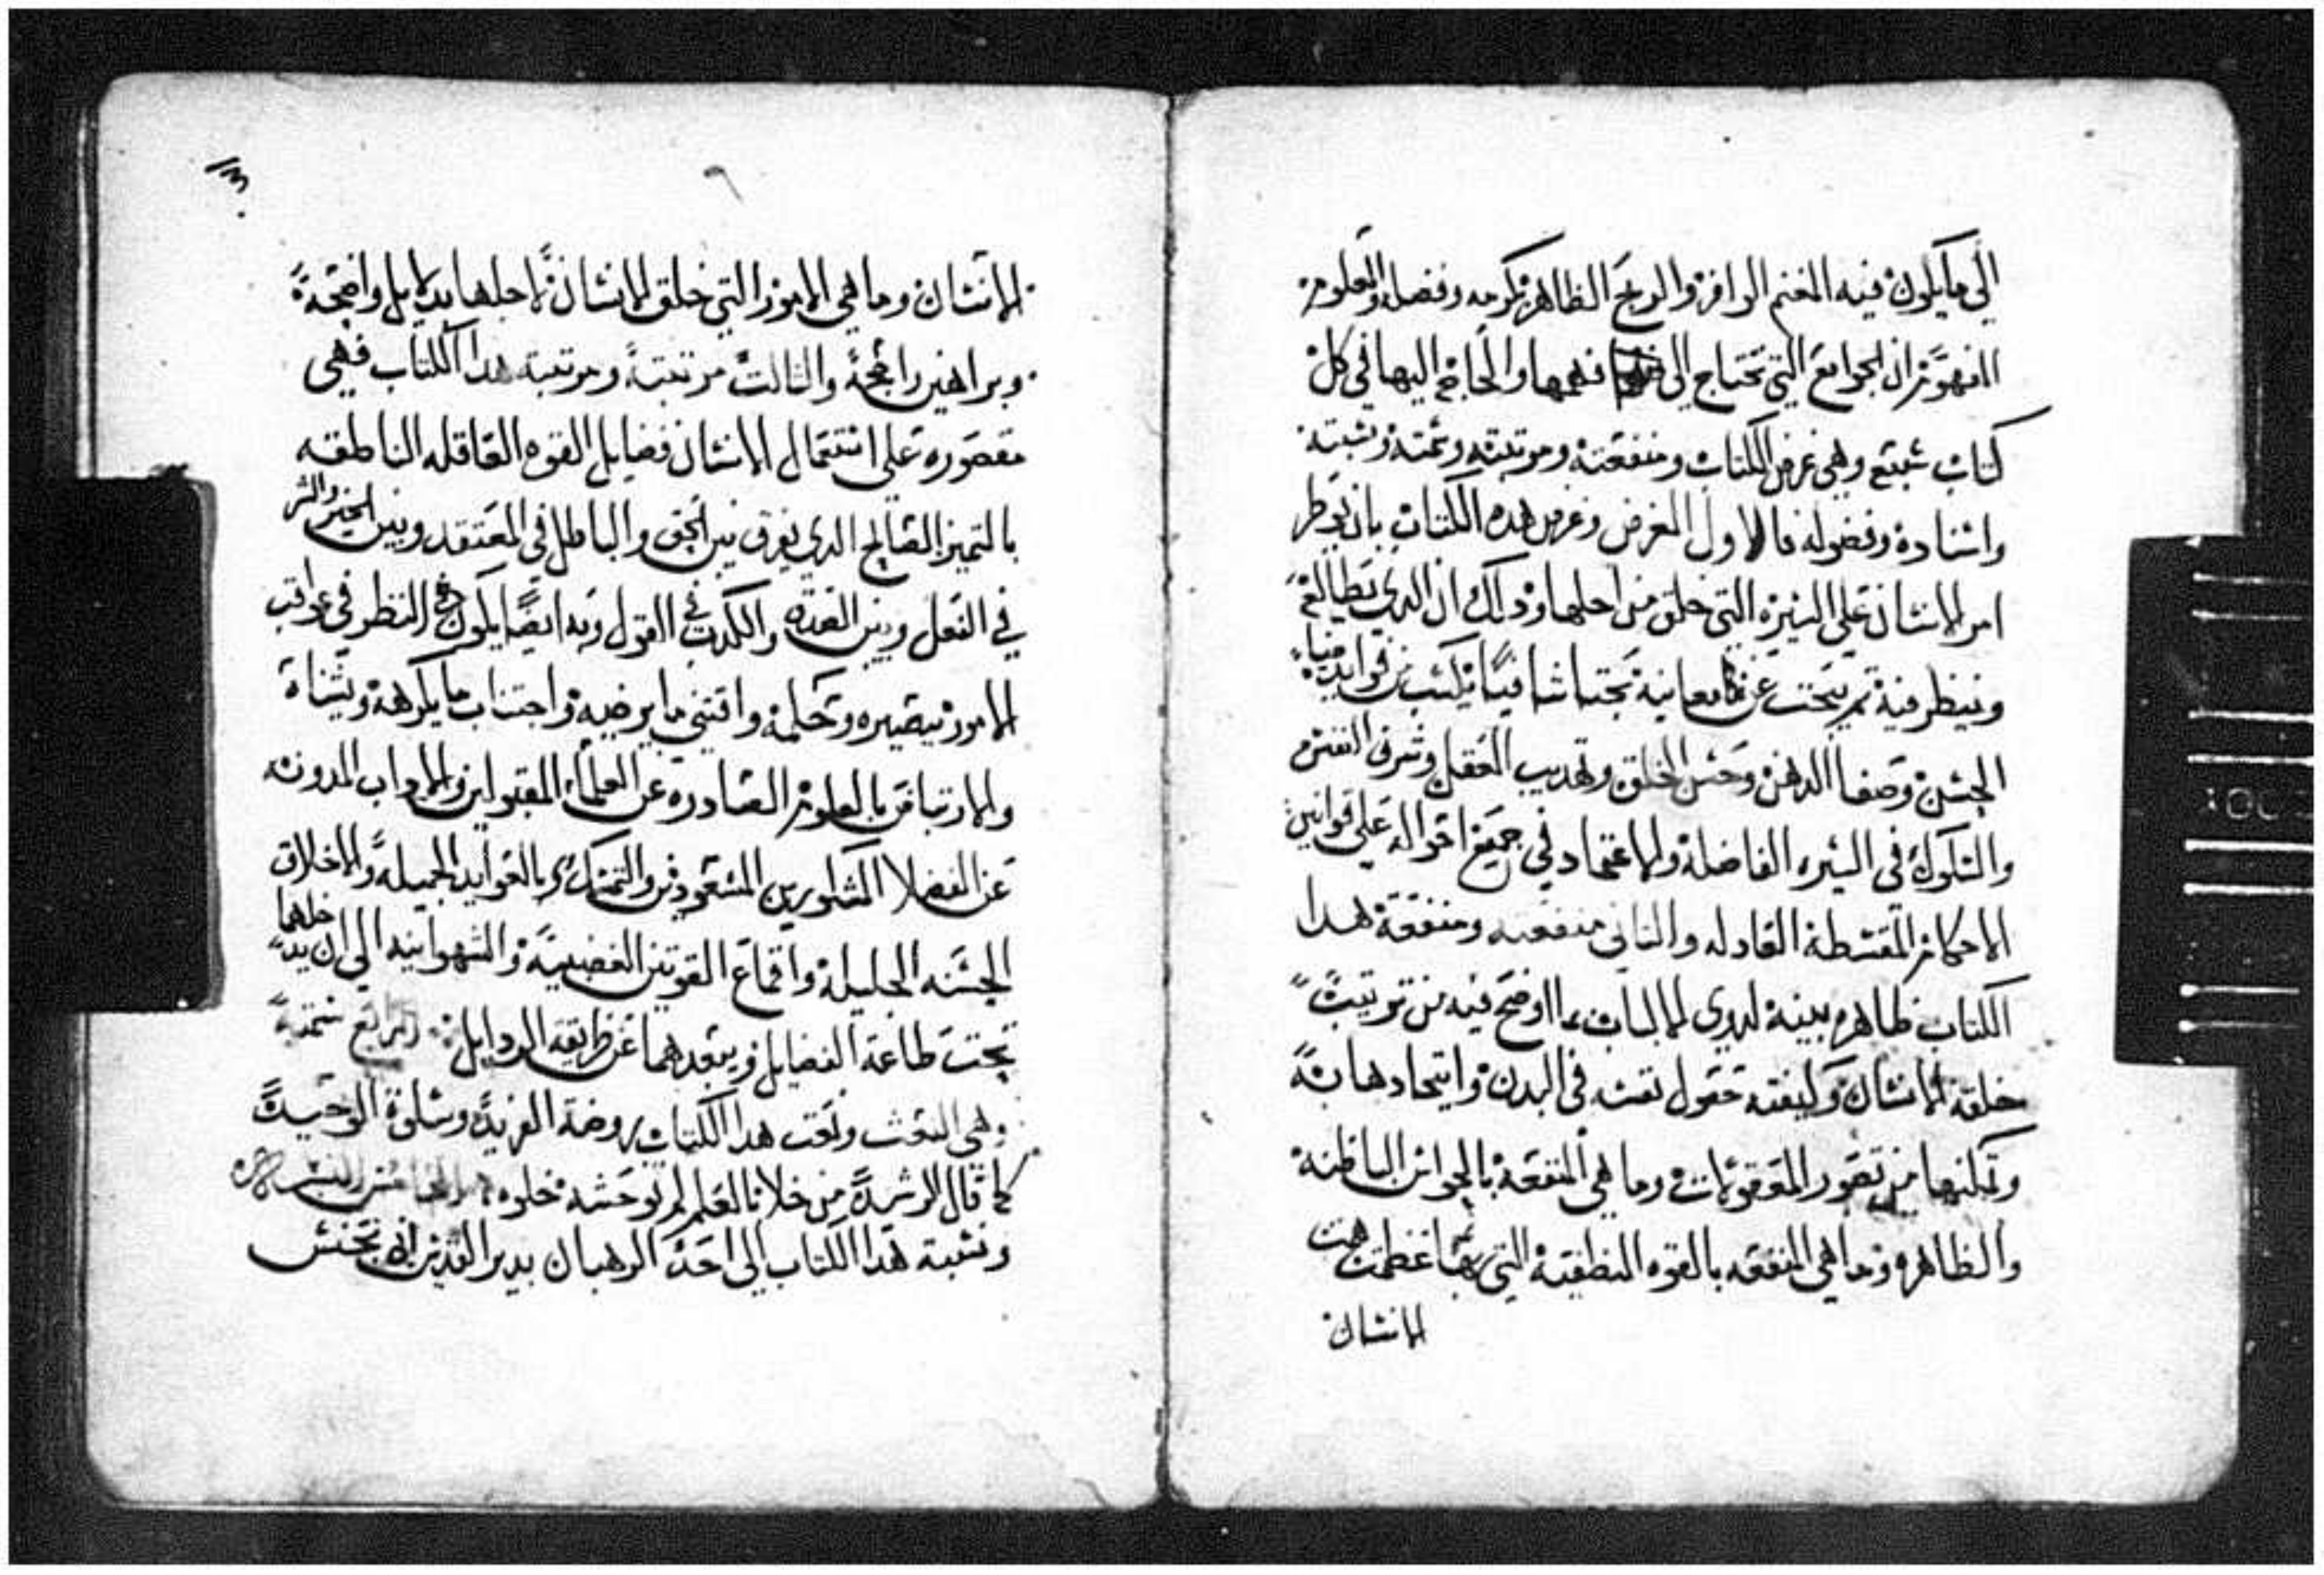 الى ما يكون فيه المغنم الوافر والربح الظاهر بكرمه وفضله والمعلوم
المفهوم ان الجوامع التي تحتاج الى فهمها والحاجه اليها في كل
كتاب سبع وهي غرض الكتاب ومنفعته ومرتبته وسمته ونسبته
واسناده وفصوله فالاول الغرض وغرض هده الكتاب بان
امر الانسان على السيره التي خلق من اجلها ودلك ان الدي يطالع
وينظر فيه تم يبحث عن معانيه بحتا شافيا يكتسب من فوايد
الحسن وصفا الدهن وحسن الخلق وتهديب العقل وشرف النفس
والسلوك في السيره الفاضله والاعتماد في جميع احواله على قوانين
الاحكام المقسطه العادله والتاني منفعته ومنفعة هدا
الكتاب ظاهره بينة لدوي الالباب بما اوضح فيه من ترتيب
خلقة الانسان وكيفته حقول نفسه في البدن واتحادها به
وتمكنها من تصور المعقولات وما هي المنفعه بالحواس الباطنه
والظاهره وما هي المنفعه بالقوه النطقية التي بها عظمت
الانسان
٣
الانسان وما هي الامور التي خلق الانسان لاجلها بدلايل واضحة
وبراهين راجحة والتالت مرتبته ومرتبة هدا الكتاب فهي
مقصوره على استعمال الانسان فضايل القوه العاقله الناطقه
بالتميز الصالح الدي يفرق بين الحق والباطل في المعتقد وبين الخير والشر
في الفعل وبين الصدق والكدب في القول وبه ايضا يكون النظر في عواقب
الامور بتصيره وحلمه واقتني ما يرضيه واجتناب ما يكرهه ويشناة
والارتباض بالعلوم الصادره عن العلماء المقبولين والاداب المدونه
عن الفضلا المشكورين المسعودين والتمسك بالعوايد الجميلة والاخلاق
الحسنه الجليله واقماع القوتين الغضبية والشهوانيه الى ان يدخلهما
تحت طاعة الفضايل ويبعدهما عن طريقه الردايل الرابع سمته
وهي النعت ونعت هدا الكتاب بروضة الفريد وسلوة الوحيد
كما قال الرشيد من خلا بالعلم لم توحشه خلوه
ونسبة هدا الكتاب الى احد الرهبان بدير القديس